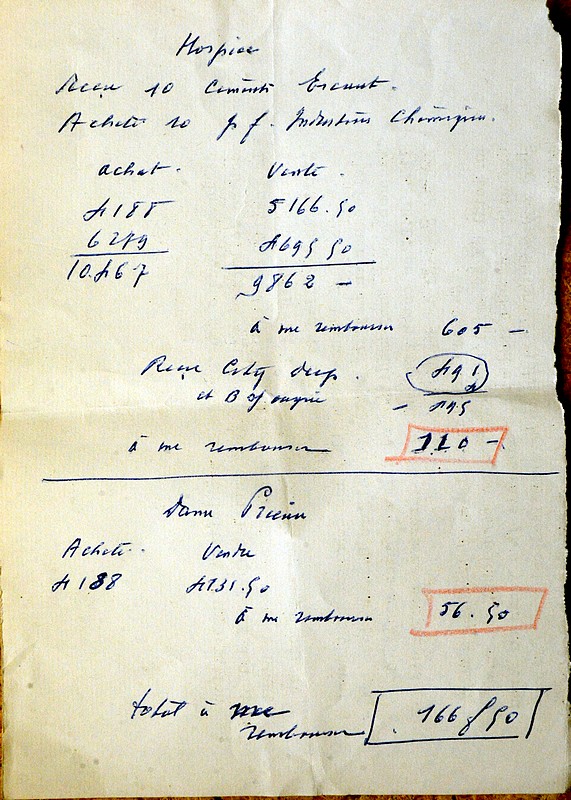 Hospice
Reçu 10 Ciments Escaut.
Acheté 10 p f. Industries Chimiques.
achat. Vente.
4188 5166.50
6279 4695 50
10.467 9862 -
à me rembourser 605 -
Reçu City dep.
et B
- 495
à me rembourser 110 -
Dame Prieure
Acheté. Vendu
4188 4131.50
à me rembourser 56.50
total à me
rembourser 166 f 50